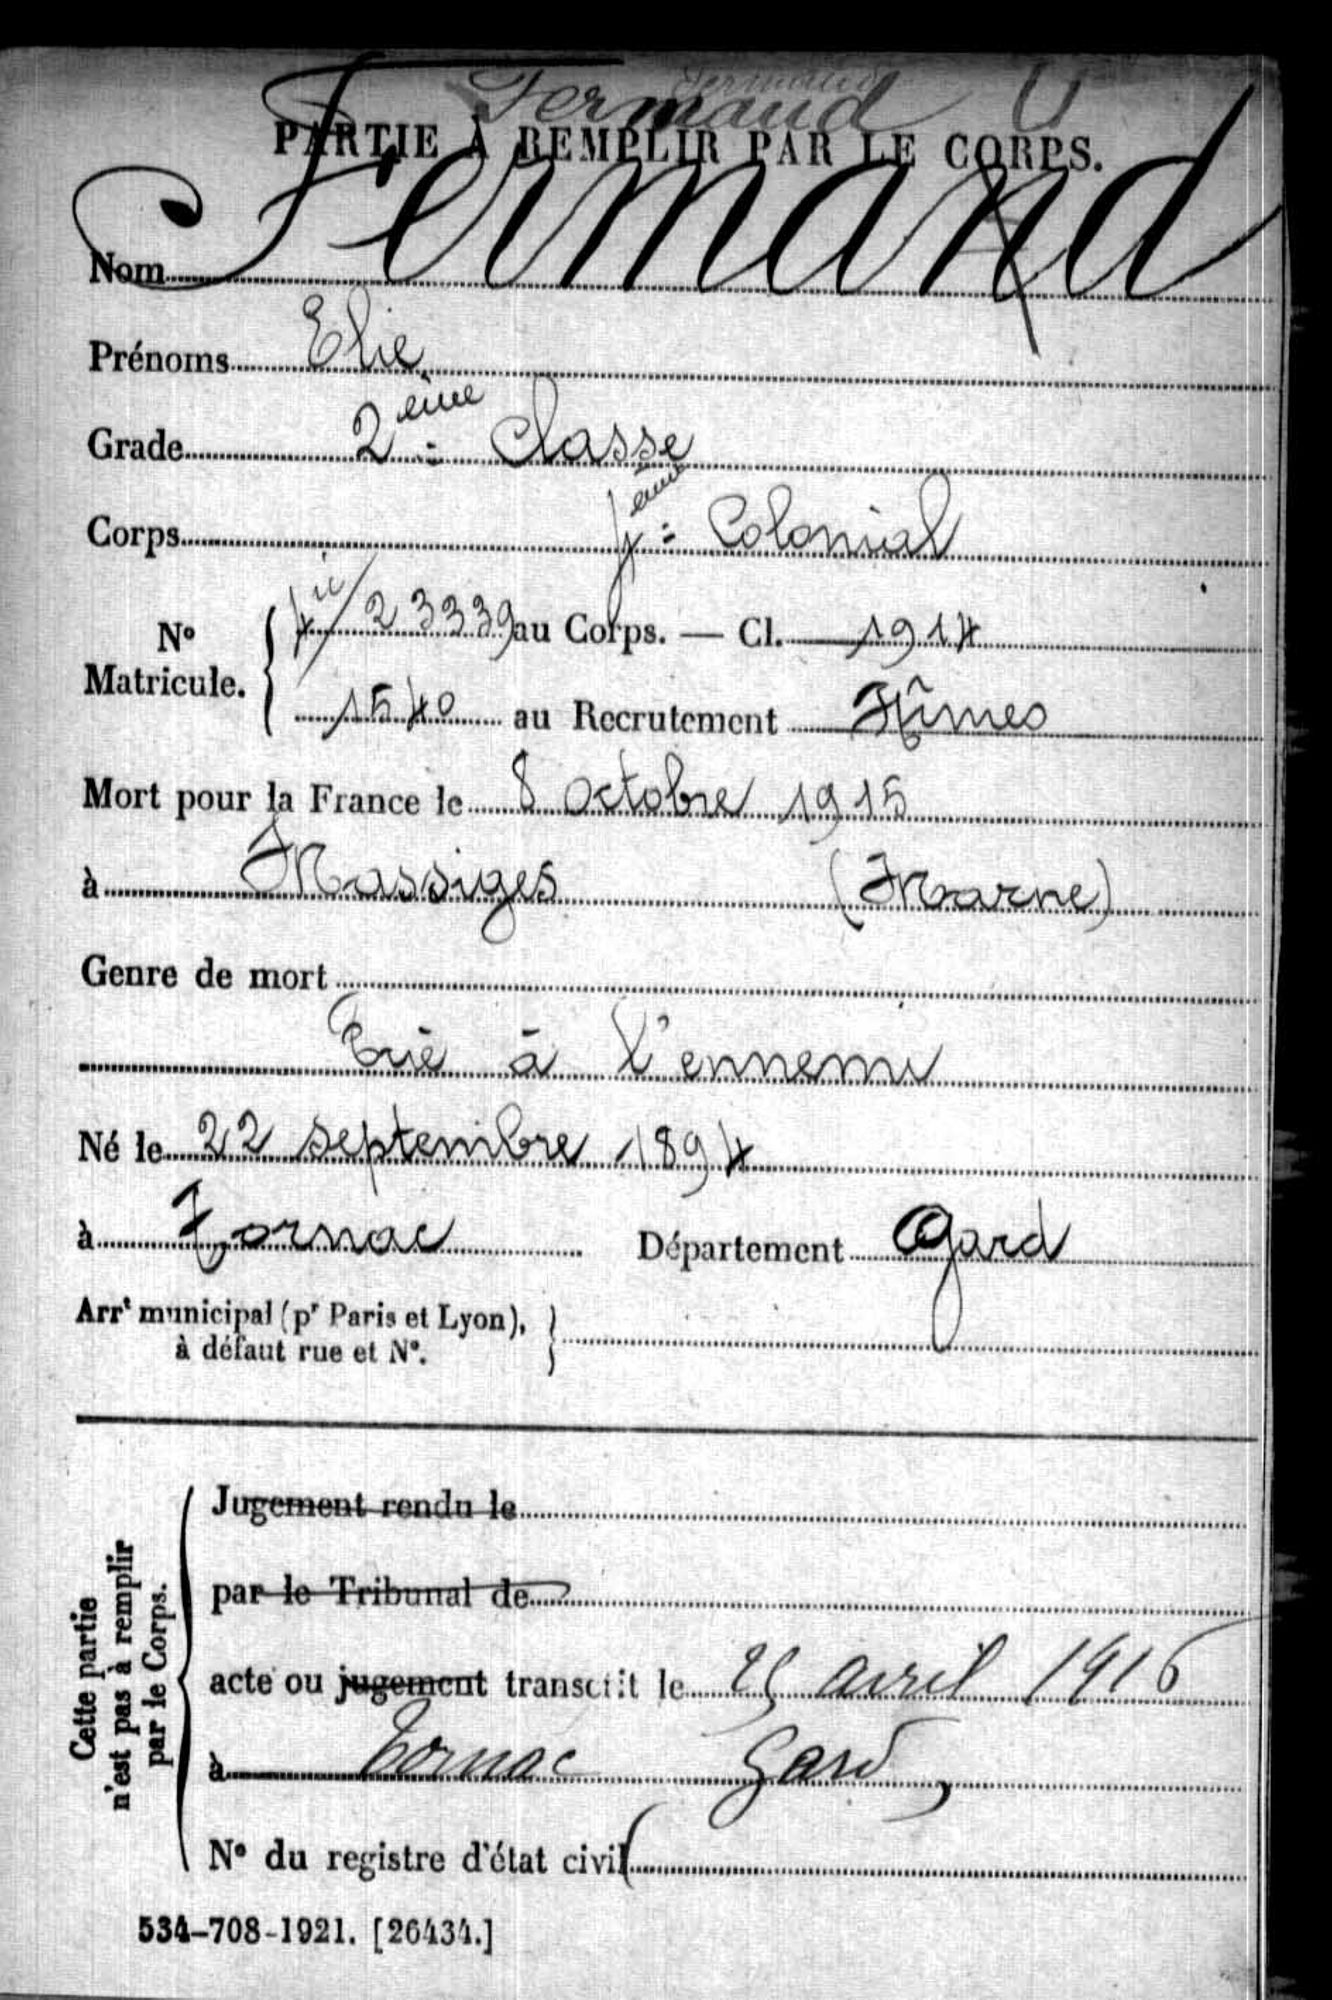 Fermaud
Fermaud
PARTIE À REMPLIR PAR LE CORPS.
Nom Fermaud
Prénoms Elie
Grade 2ème Classe
Corps 4ème Colonial
N° Matricule. 23339 au Corps. — Cl. 1914
1540 au Recrutement Nîmes
Mort pour la France le 8 Octobre 1915
à Massiges (Marne)
Genre de mort
Tué à l'ennemi
Né le 22 septembre 1894
à Tornac Département Gard
Arrt municipal (pr Paris et Lyon),
à défaut rue et N°.
Cette partie
n'est pas à remplir
par le Corps.
Jugement rendu le
par le Tribunal de
acte ou jugement transcrit le 25 avril 1916
à Tornac Gard
N° du registre d'état civil
534-708-1921. [26434.]